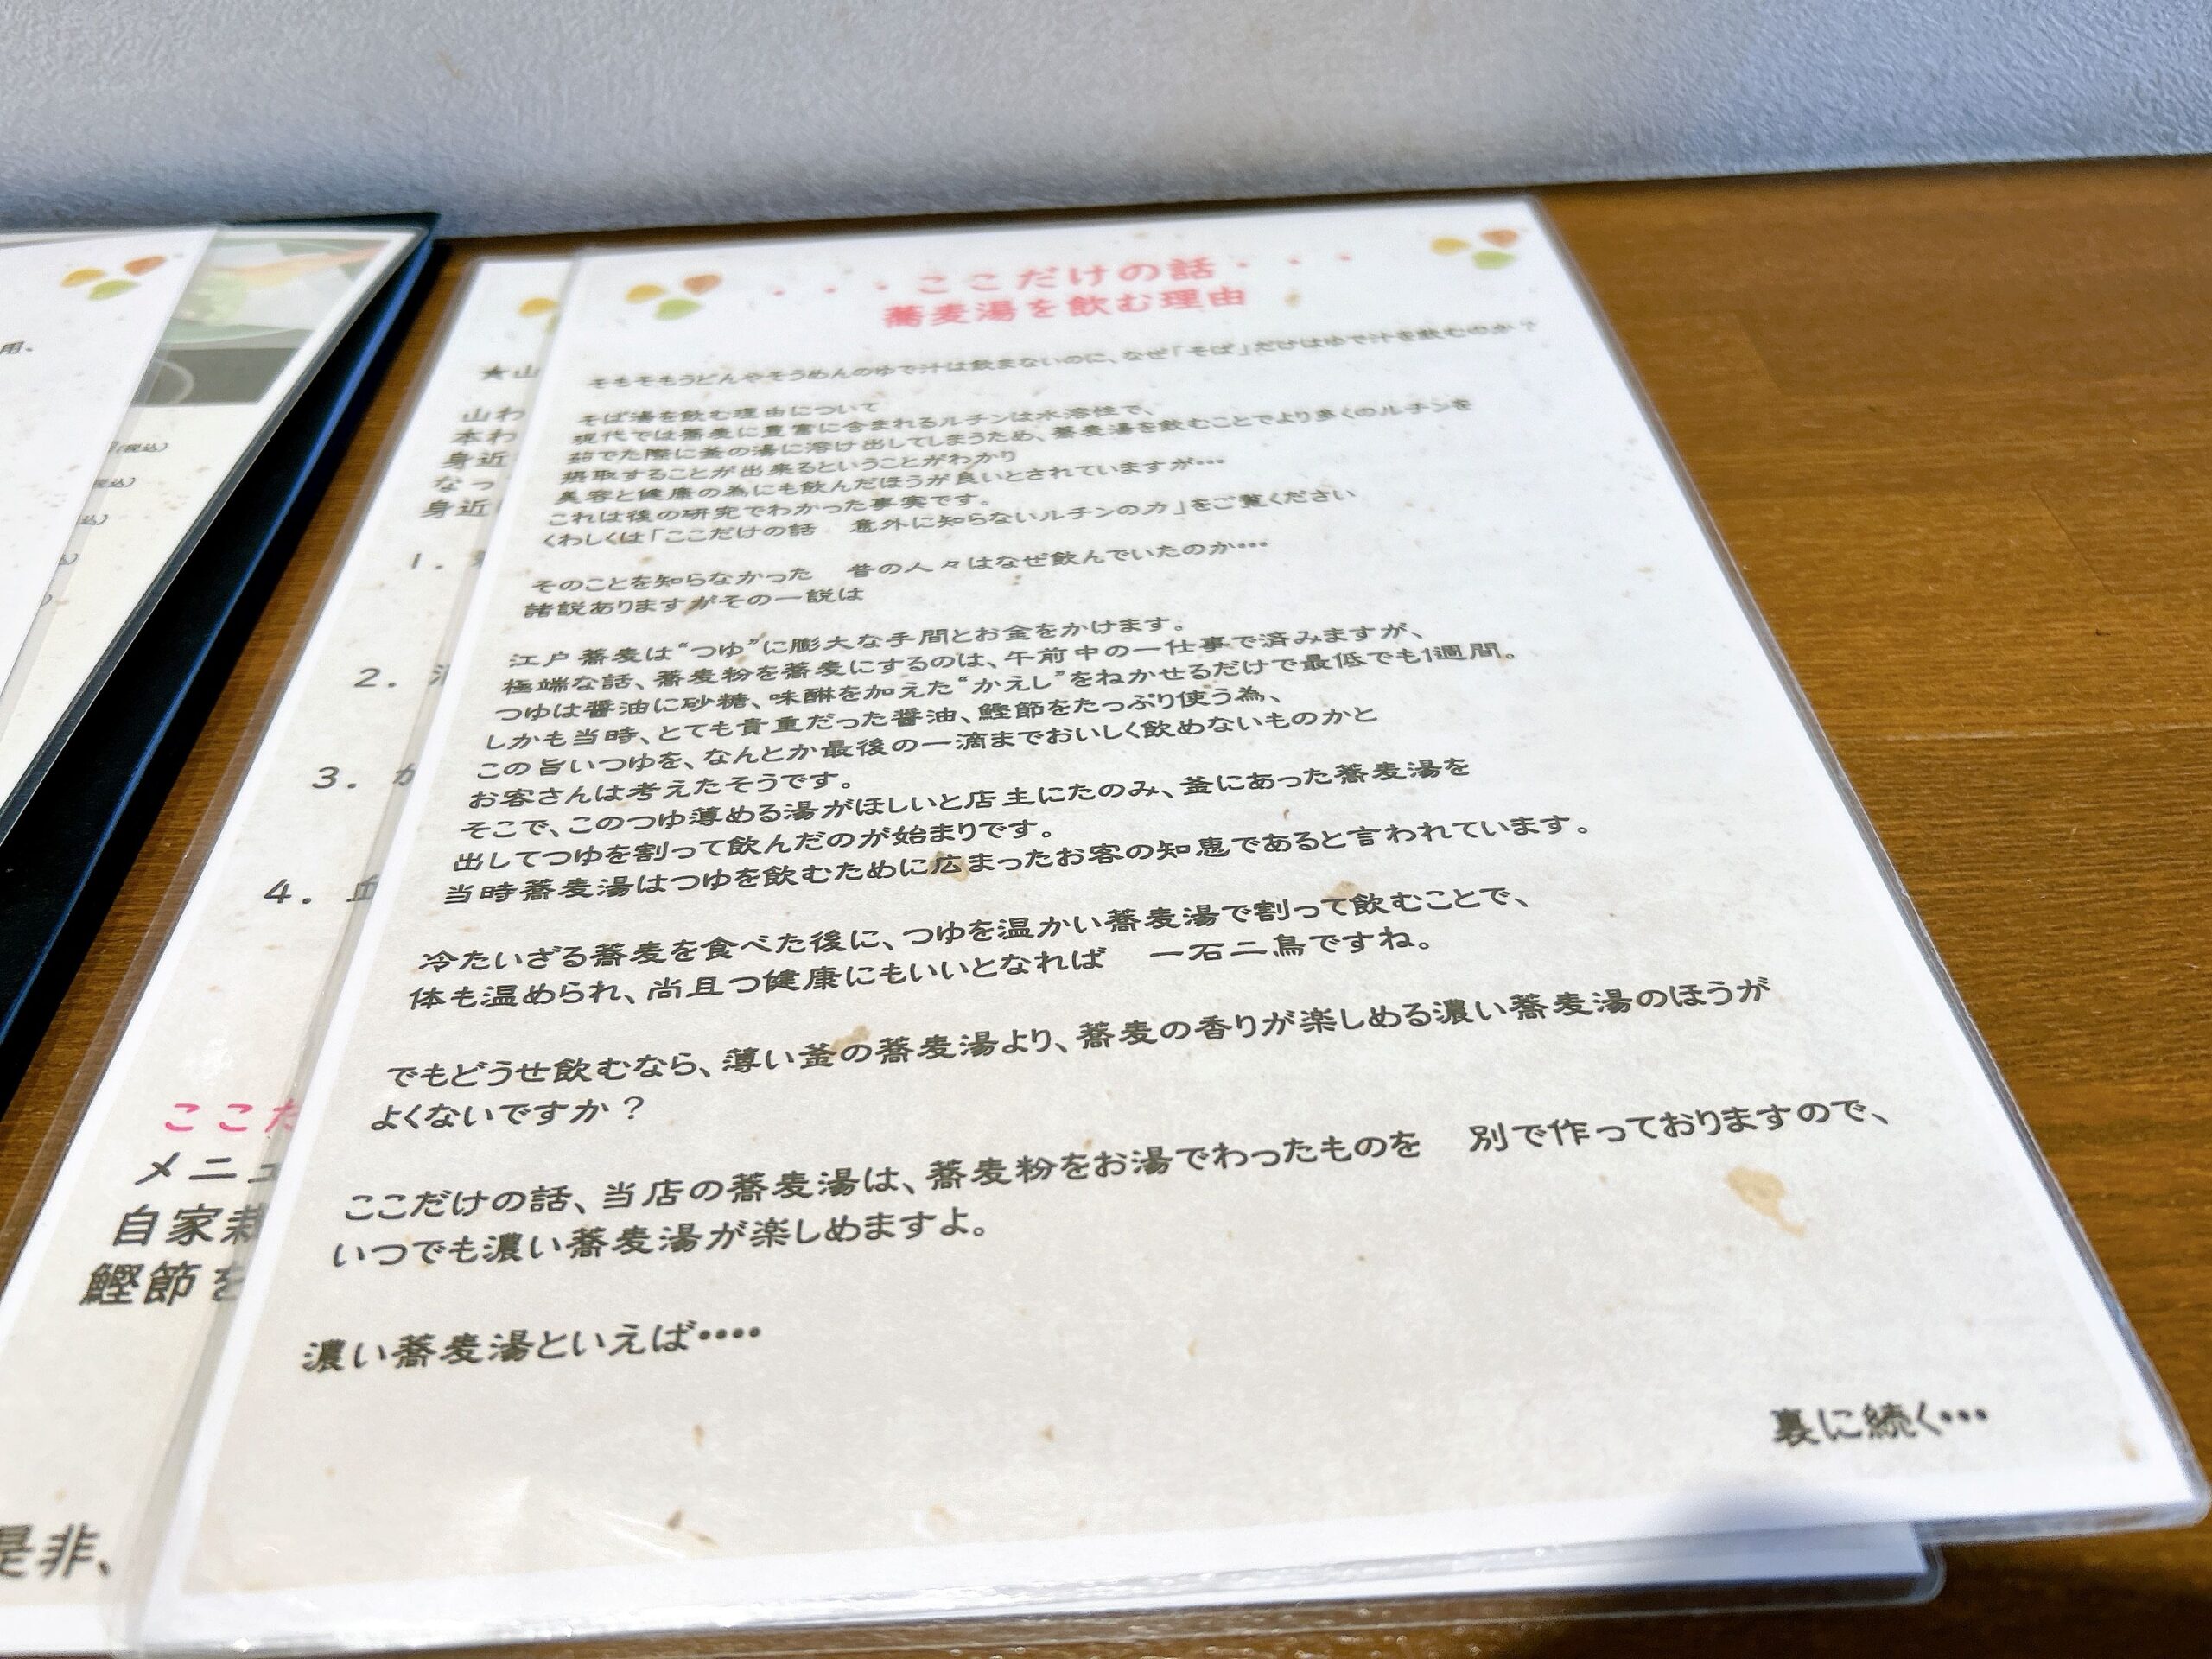 ・・・ここだけの話・・・
蕎麦湯を飲む理由
そもそもうどんやそうめんのゆで汁は飲まないのに、なぜ「そば」だけはゆで汁を飲むのか？
そば湯を飲む理由について
現代では蕎麦に豊富に含まれるルチンは水溶性で、
茹でた際に釜の湯に溶け出してしまうため、蕎麦湯を飲むことでより多くのルチンを
摂取することが出来るということがわかり
美容と健康の為にも飲んだほうが良いとされていますが・・・
これは後の研究でわかった事実です。
くわしくは「ここだけの話　意外に知らないルチンの力」をご覧ください
そのことを知らなかった　昔の人々はなぜ飲んでいたのか・・・
諸説ありますがその一説は
江戸蕎麦は“つゆ”に膨大な手間とお金をかけます。
極端な話、蕎麦粉を蕎麦にするのは、午前中の一仕事で済みますが、
つゆは醤油に砂糖、味醂を加えた“かえし”をねかせるだけで最低でも1週間。
しかも当時、とても貴重だった醤油、鰹節をたっぷり使う為、
この旨いつゆを、なんとか最後の一滴までおいしく飲めないものかと
お客さんは考えたそうです。
そこで、このつゆ薄める湯がほしいと店主にたのみ、釜にあった蕎麦湯を
出してつゆを割って飲んだのが始まりです。
当時蕎麦湯はつゆを飲むために広まったお客の知恵であると言われています。
冷たいざる蕎麦を食べた後に、つゆを温かい蕎麦湯で割って飲むことで、
体も温められ、尚且つ健康にもいいとなれば　一石二鳥ですね。
でもどうせ飲むなら、薄い釜の蕎麦湯より、蕎麦の香りが楽しめる濃い蕎麦湯のほうが
よくないですか？
ここだけの話、当店の蕎麦湯は、蕎麦粉をお湯でわったものを　別で作っておりますので、
いつでも濃い蕎麦湯が楽しめますよ。
濃い蕎麦湯といえば・・・・
裏に続く・・・
★山
山わ
本わ
身近
なっ
身近
1.
2.
3. か
4. 血
ここだ
メニュ
自家栽
鰹節を
是非、
用、
(税込)